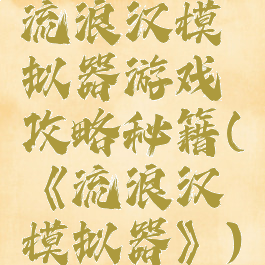 流浪汉模
拟器游戏
攻略秘籍(
《流浪汉
模拟器》)